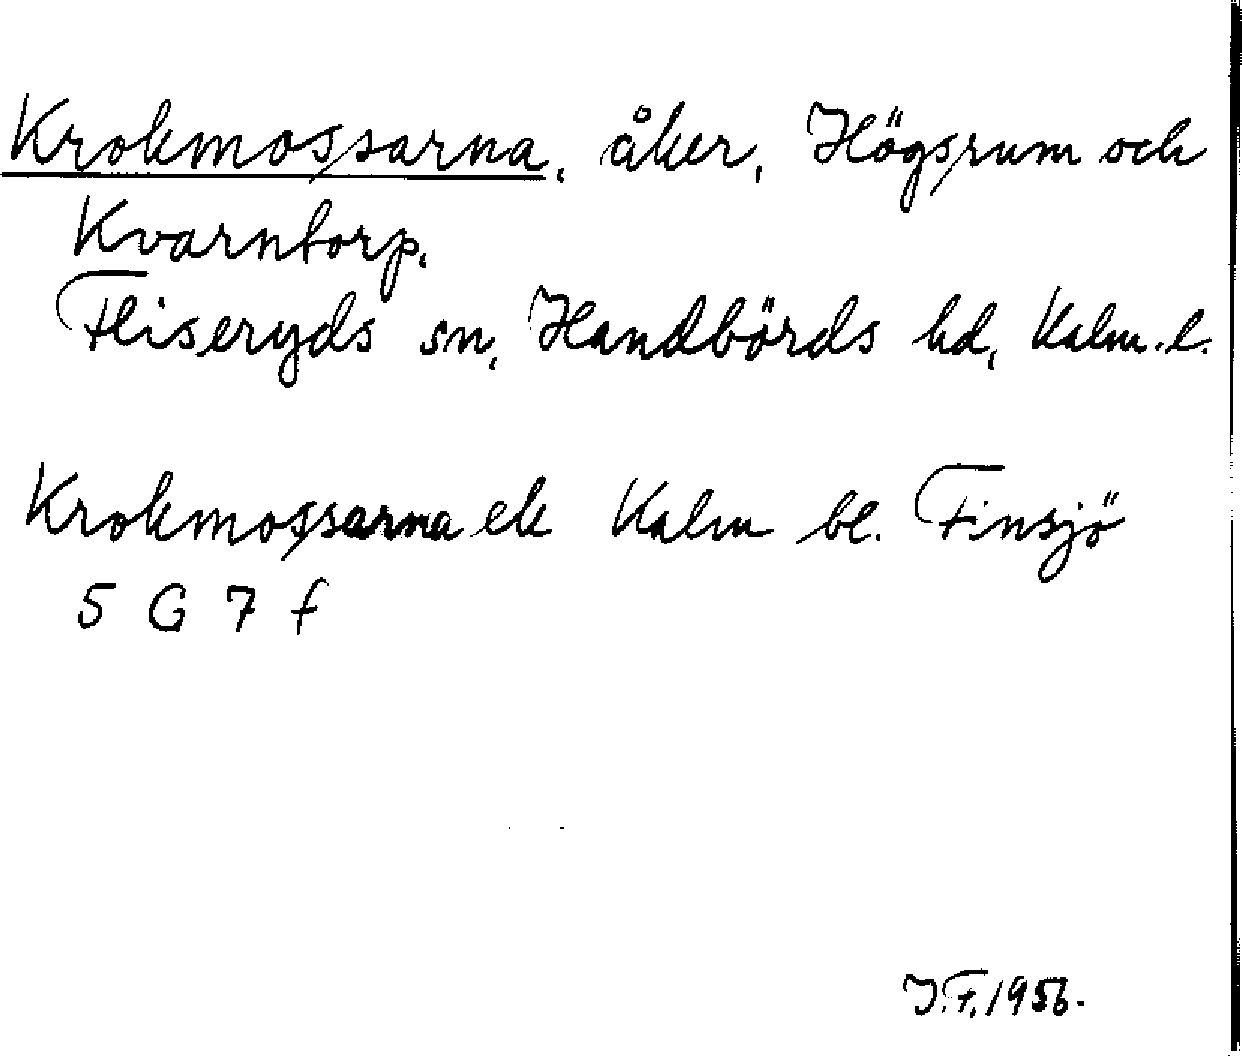 Krokmossarna, åker, Högsrum och
Kvarntorp.
Fliseryds sn, Handbörds hd, Kalm. l.
Krokmossarna ek Kalm bl. Finsjö
5 G 7 f
J.F. 1956.